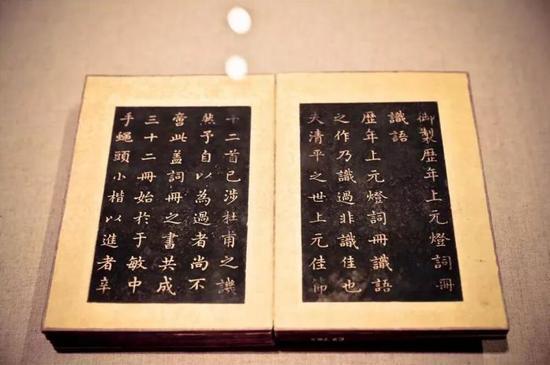 御製歷年上元燈詞冊
識語
歷年上元燈詞冊識語
之作乃識過非識佳也
夫清平之世上元佳節
十二首已涉杜甫之譏
然予自以為過者尚不
啻此蓋詞冊之書共成
三十二冊始於于敏中
手蠅頭小楷以進者辛